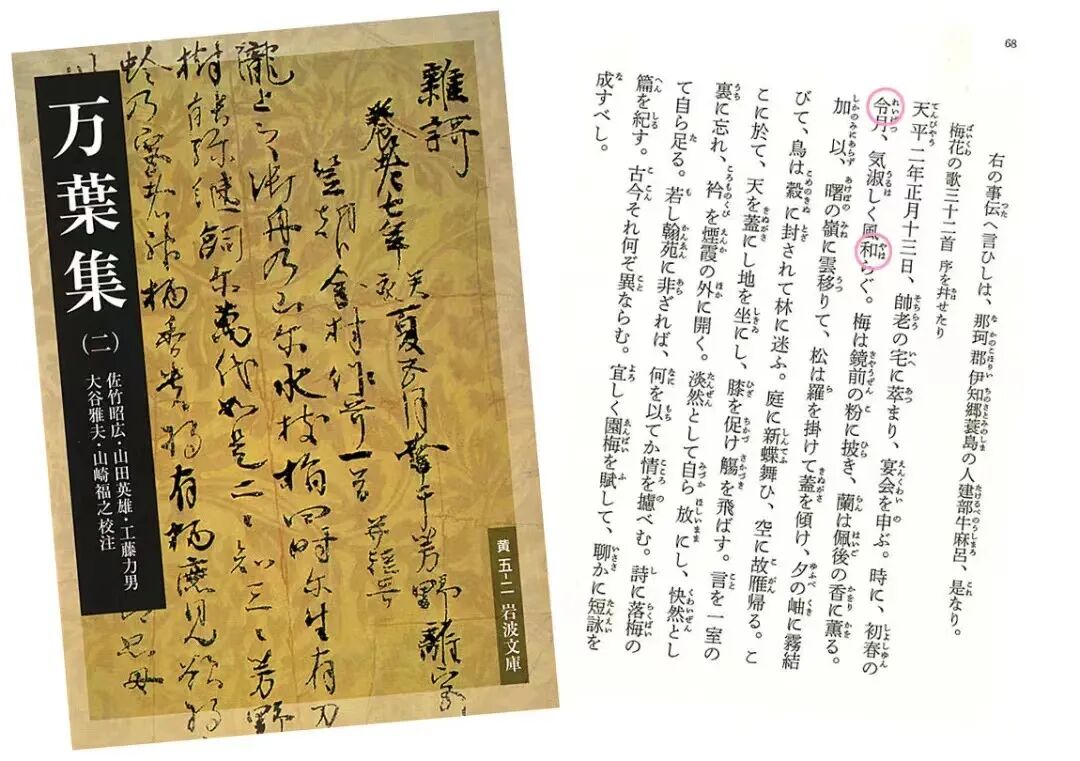 雜謌
養老七年癸亥夏五月幸于芳野離宮
笠朝臣金村作哥一首 并短哥
瀧上之御舟乃山尓水枝指四時尓生有刀
樹能弥継飼尓萬代如是二〻知三〻芳野
万葉集
(二)
佐竹昭広・山田英雄・工藤力男
大谷雅夫・山崎福之校注
黄五-二
岩波文庫
68
右の事伝へ言ひしは、那珂郡伊知郷蓑島の人建部牛麻呂、是なり。
梅花の歌三十二首 序を并せたり
天平二年正月十三日、帥老の宅に萃まり、宴会を申ぶ。時に、初春の
令月、気淑しく風和らぐ。梅は鏡前の粉に披き、蘭は佩後の香に薫る。
加以、曙の嶺に雲移りて、松は羅を掛けて蓋を傾け、夕の岫に霧結
びて、鳥は縠に封されて林に迷ふ。庭に新蝶舞ひ、空に故雁帰る。こ
こに於て、天を蓋にし地を坐にし、膝を促け觴を飛ばす。言を一室の
裏に忘れ、衿を煙霞の外に開く。淡然として自ら放にし、快然とし
て自ら足る。若し翰苑に非ざれば、何を以てか情を攄べむ。詩に落梅の
篇を紀す。古今それ何ぞ異ならむ。宜しく園梅を賦して、聊かに短詠を
成すべし。